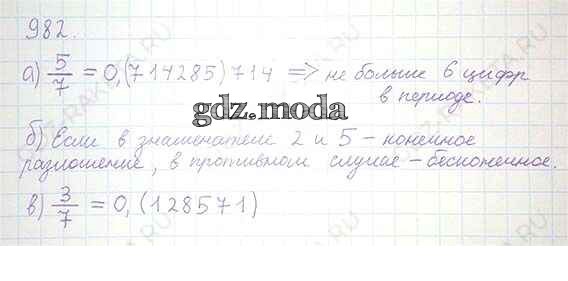 982.
а) 5/7 = 0,(714285)714 => не больше 6 цифр
в периоде.
gdz.moda
б) Если в знаменателе 2 и 5 – конечное
разложение, в противном случае – бесконечное.
в) 3/7 = 0,(128571)